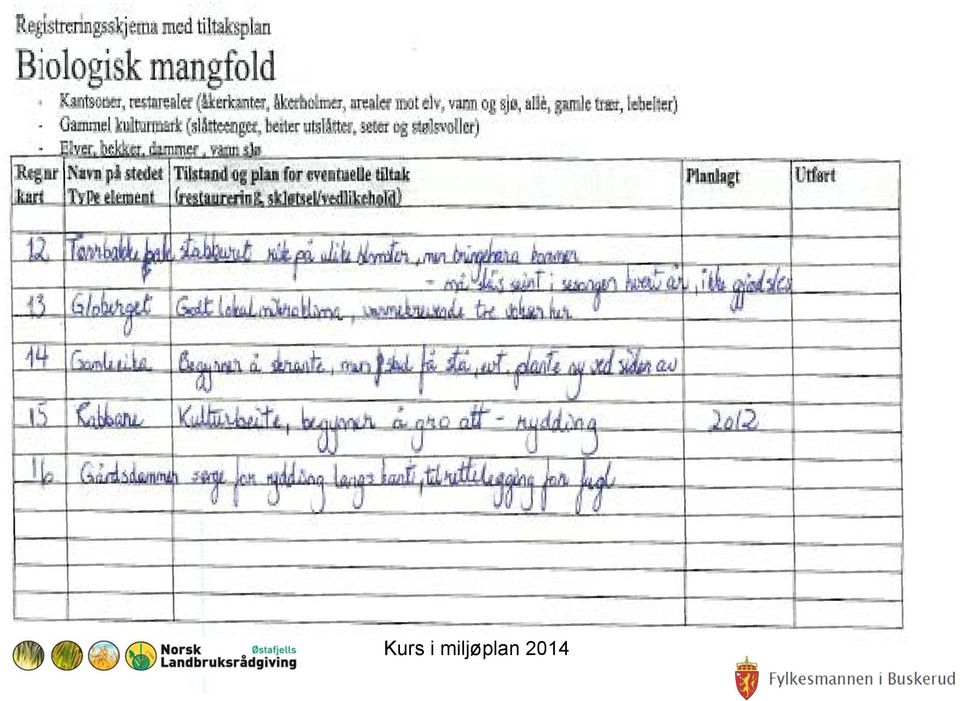 Registreringsskjema med tiltaksplan
Biologisk mangfold
- Kantsoner, restarealer (åkerkanter, åkerholmer, arealer mot elv, vann og sjø, allè, gamle trær, lehelter)
- Gammel kulturmark (slåtteenger, beiter utslåtter, seter og stølsvoller)
- Elver, bekker, dammer , vann sjø
Reg nr kart Navn på stedet Type element Tilstand og plan for eventuelle tiltak (restaurering, skjøtsel/vedlikehold) Planlagt Utført
12 Tørrbakke bak stabburet rik på ulike blomster, men bringebæra kommer
- må slås seint i sesongen hvert år, ikke gjødsles
13 Globerget Godt lokal mikroklima, varmekrevende tre vokser her
14 Gamleeika Begynner å skrante, men skal få stå, evt. plante ny ved siden av
15 Rabbane Kulturbeite, begynner å gro att - rydding 2012
16 Gårdsdammen sørge for rydding langs kant, tilrettelegging for fugl
Norsk Landbruksrådgiving Østafjells
Kurs i miljøplan 2014
Fylkesmannen i Buskerud